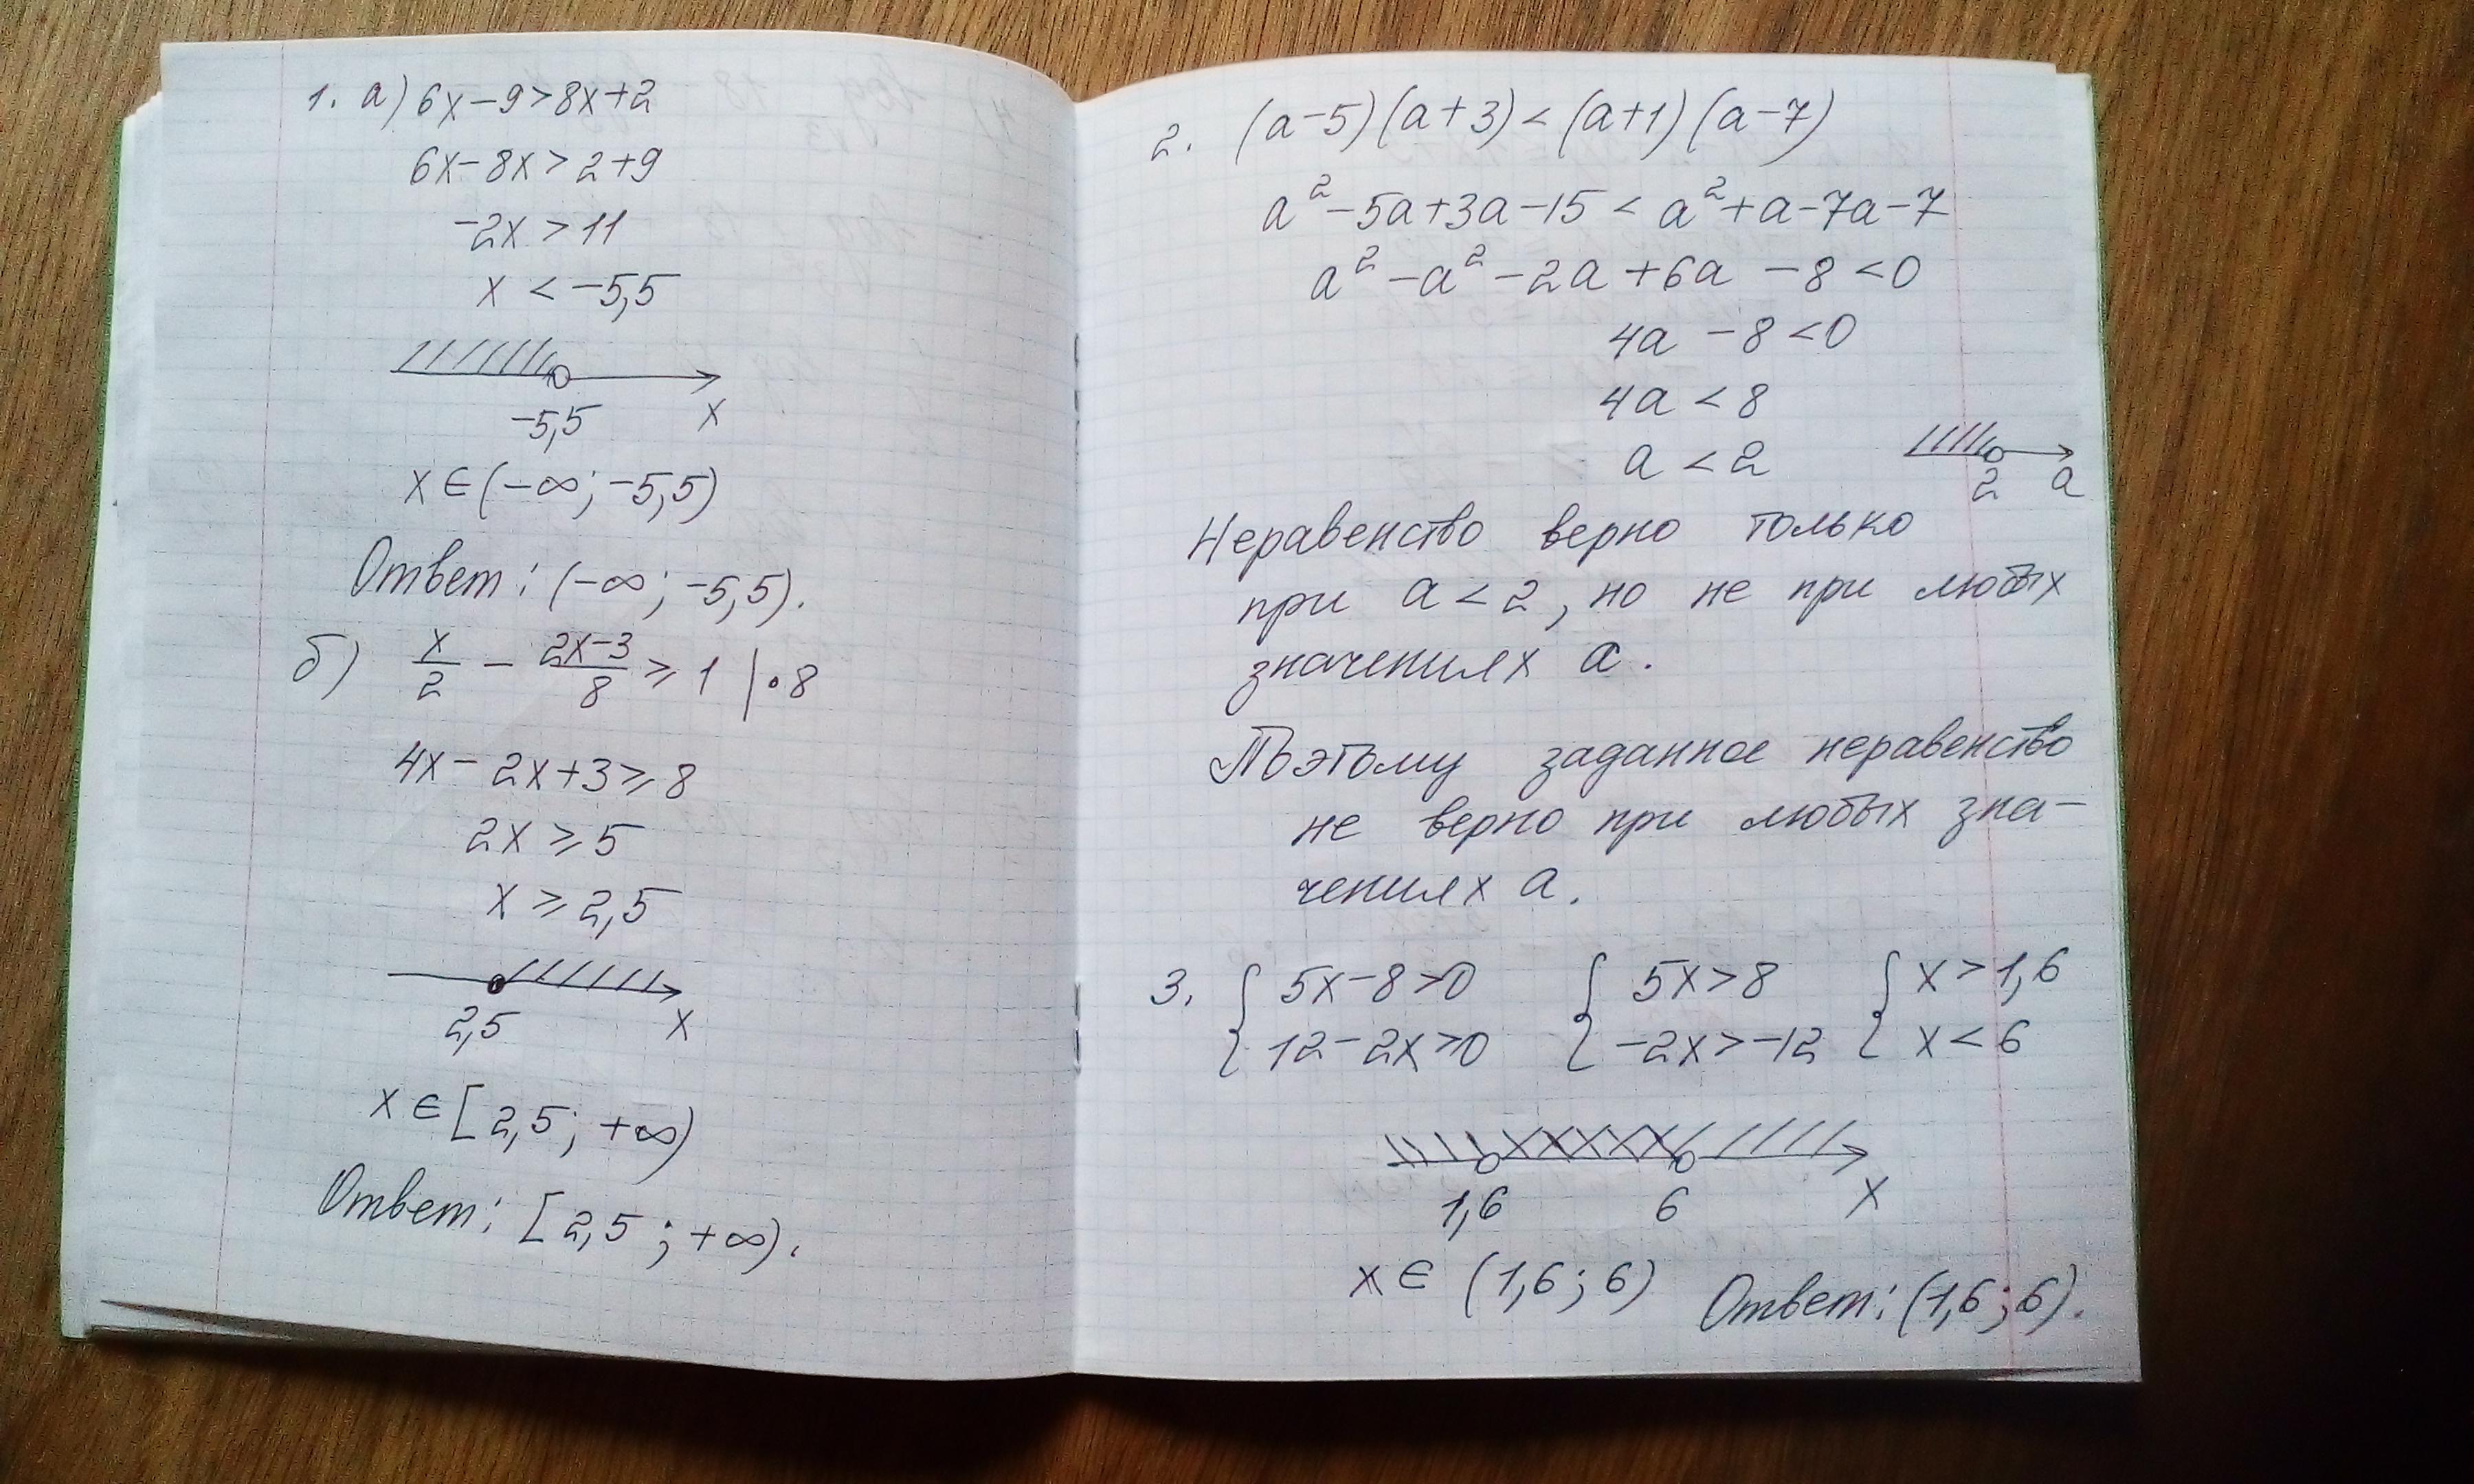 1. а) 6x-9>8x+2
6x-8x>2+9
-2x>11
x<-5,5
-5,5 x
x∈(-∞;-5,5)
Ответ: (-∞;-5,5).
б) x/2 - (2x-3)/8 ≥ 1 |·8
4x-2x+3≥8
2x≥5
x≥2,5
2,5 x
x∈[2,5;+∞)
Ответ: [2,5;+∞).
2. (a-5)(a+3)<(a+1)(a-7)
a²-5a+3a-15<a²+a-7a-7
a²-a²-2a+6a-8<0
4a-8<0
4a<8
a<2
2 a
Неравенство верно только
при a<2, но не при любых
значениях a.
Поэтому заданное неравенство
не верно при любых зна-
чениях a.
3. { 5x-8>0 { 5x>8 { x>1,6
12-2x>0 -2x>-12 x<6
1,6 6 x
x∈(1,6;6) Ответ: (1,6;6).